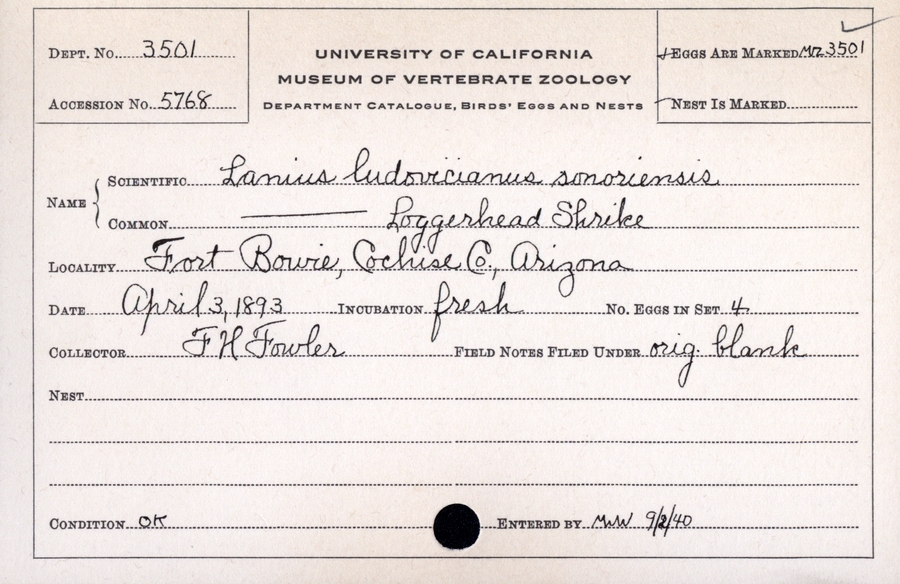 DEPT. NO. 3501
ACCESSION NO. 5768
UNIVERSITY OF CALIFORNIA
MUSEUM OF VERTEBRATE ZOOLOGY
DEPARTMENT CATALOGUE, BIRDS' EGGS AND NESTS
EGGS ARE MARKED MVZ 3501
NEST IS MARKED
NAME
SCIENTIFIC Lanius ludovicianus sonoriensis
COMMON —— Loggerhead Shrike
LOCALITY Fort Bowie, Cochise Co., Arizona
DATE April 3, 1893 INCUBATION fresh NO. EGGS IN SET 4
COLLECTOR F H Fowler FIELD NOTES FILED UNDER orig. blank
NEST
CONDITION OK ENTERED BY 9/2/40